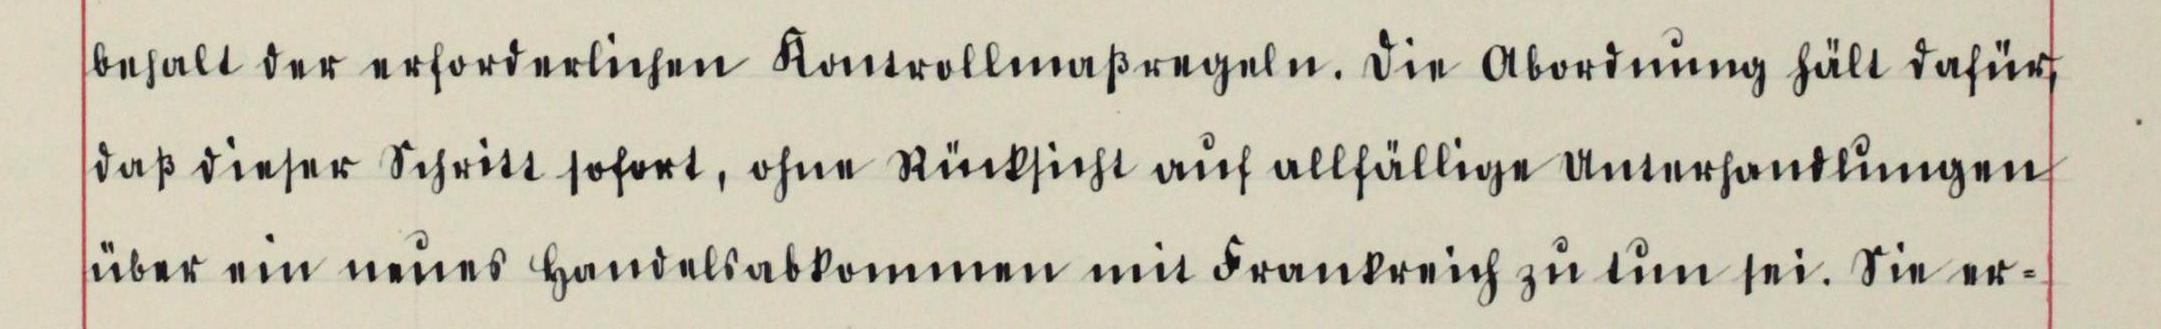 behalt der erforderlichen Kontrollmaßregeln. Die Abordnung hält dafür,
daß dieser Schritt sofort, ohne Rücksicht auf allfällige Unterhandlungen
über ein neues Handelsabkommen mit Frankreich zu tun sei. Sie er-